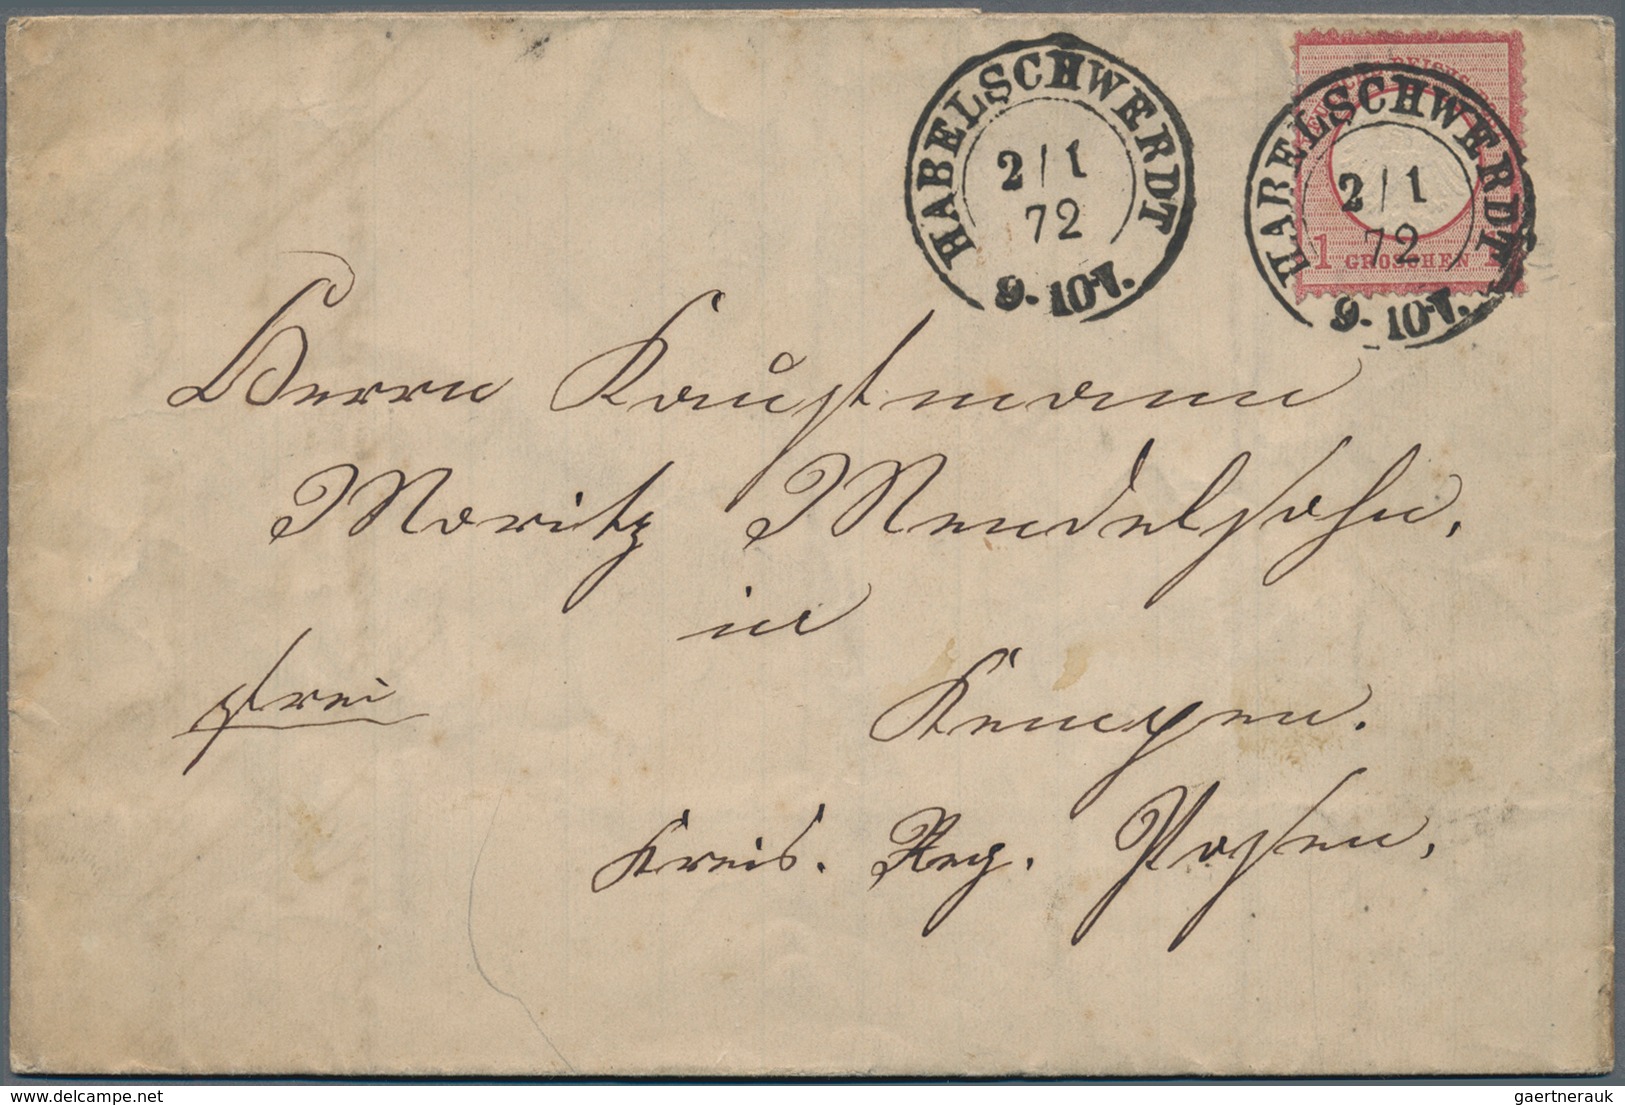 HABELSCHWERDT
2 | 1
72
9-10V.
DEUTSCHE REICHS
HABELSCHWERDT
2 | 1
72
9-10V.
1 GROSCHEN 1
Herrn Kaufmann
Moritz Mendelsohn,
in
frei
Kempen.
Kreis. Reg. Posen,
delcampe.net
gaertnerauk